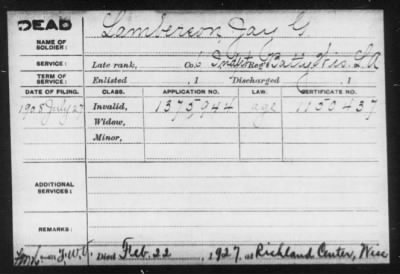 DEAD
NAME OF SOLDIER: Lamberson, Jay G.
SERVICE: Late rank, Co. 6 Indpt Batty Wis. L A
TERM OF SERVICE: Enlisted , 1 Discharged , 1
DATE OF FILING. CLASS. APPLICATION NO. LAW. CERTIFICATE NO.
1908 July 27 Invalid, 1375944 age 1150437
Widow,
Minor,
ADDITIONAL SERVICES:
REMARKS:
Died Feb. 22, 1927, at Richland Center, Wisc